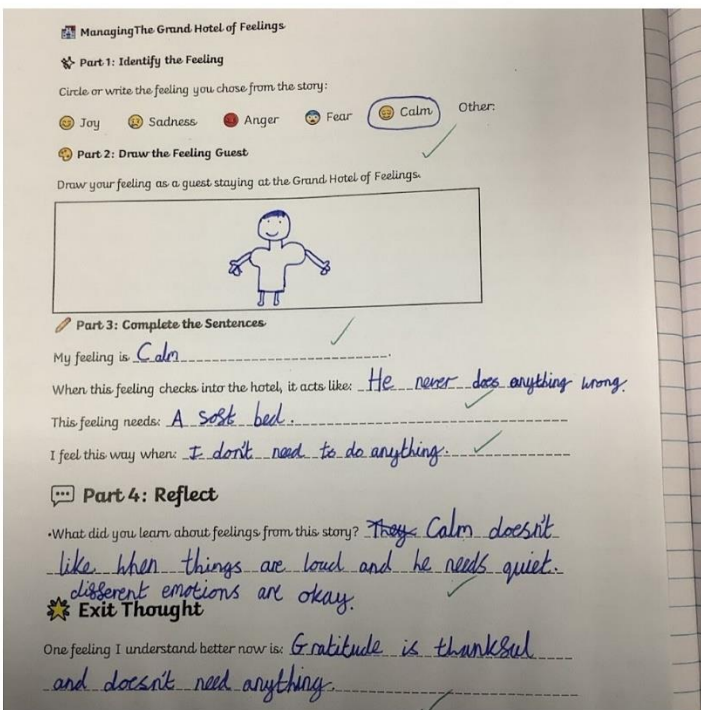 ManagingThe Grand Hotel of Feelings
Part 1: Identify the Feeling
Circle or write the feeling you chose from the story:
Joy Sadness Anger Fear Calm Other:
Part 2: Draw the Feeling Guest
Draw your feeling as a guest staying at the Grand Hotel of Feelings.
Part 3: Complete the Sentences
My feeling is Calm.
When this feeling checks into the hotel, it acts like: He never does anything wrong.
This feeling needs: A soft bed.
I feel this way when: I don't need to do anything.
Part 4: Reflect
•What did you learn about feelings from this story? They Calm doesn't
like when things are loud and he needs quiet.
different emotions are okay.
Exit Thought
One feeling I understand better now is: Gratitude is thankful
and doesn't need anything.